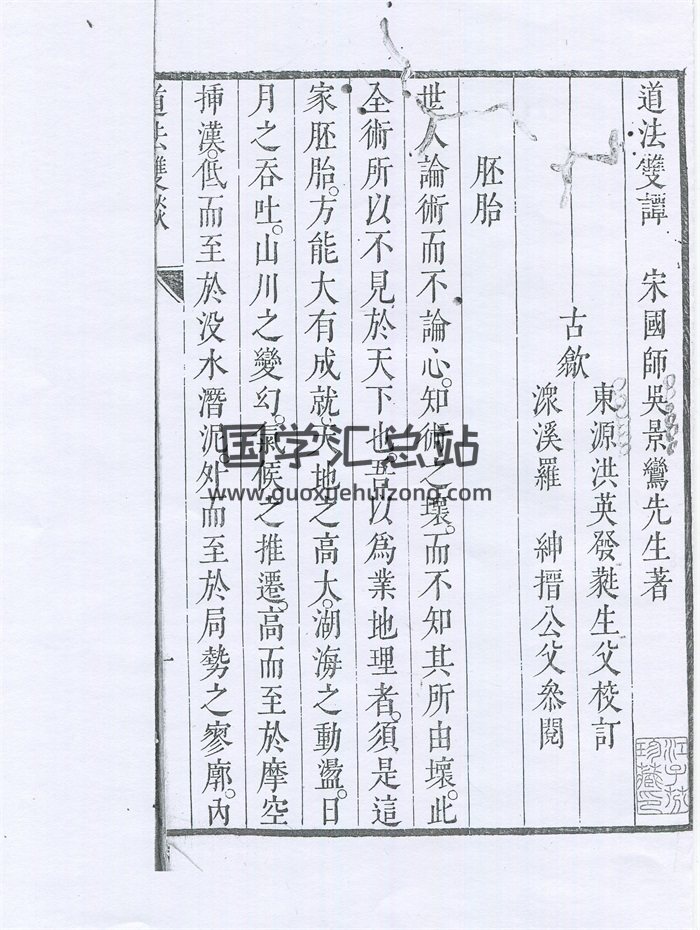 道法雙譚　宋國師吳景鸞先生著
東源洪英發蕤生父校訂
古歙
潨溪羅　紳搢公父叅閱
胚胎
世人論術而不論心。知術之壞。而不知其所由壞。此
全術所以不見於天下也。吾以爲業地理者。須是這
家胚胎。方能大有成就。天地之高大。湖海之動盪。日
月之吞吐。山川之變幻。氣候之推遷。高而至於摩空
揷漢。低而至於没水潛泥。外而至於局勢之寥廓。內
道法雙談
一
国学汇总站
www.guoxuehuizong.com